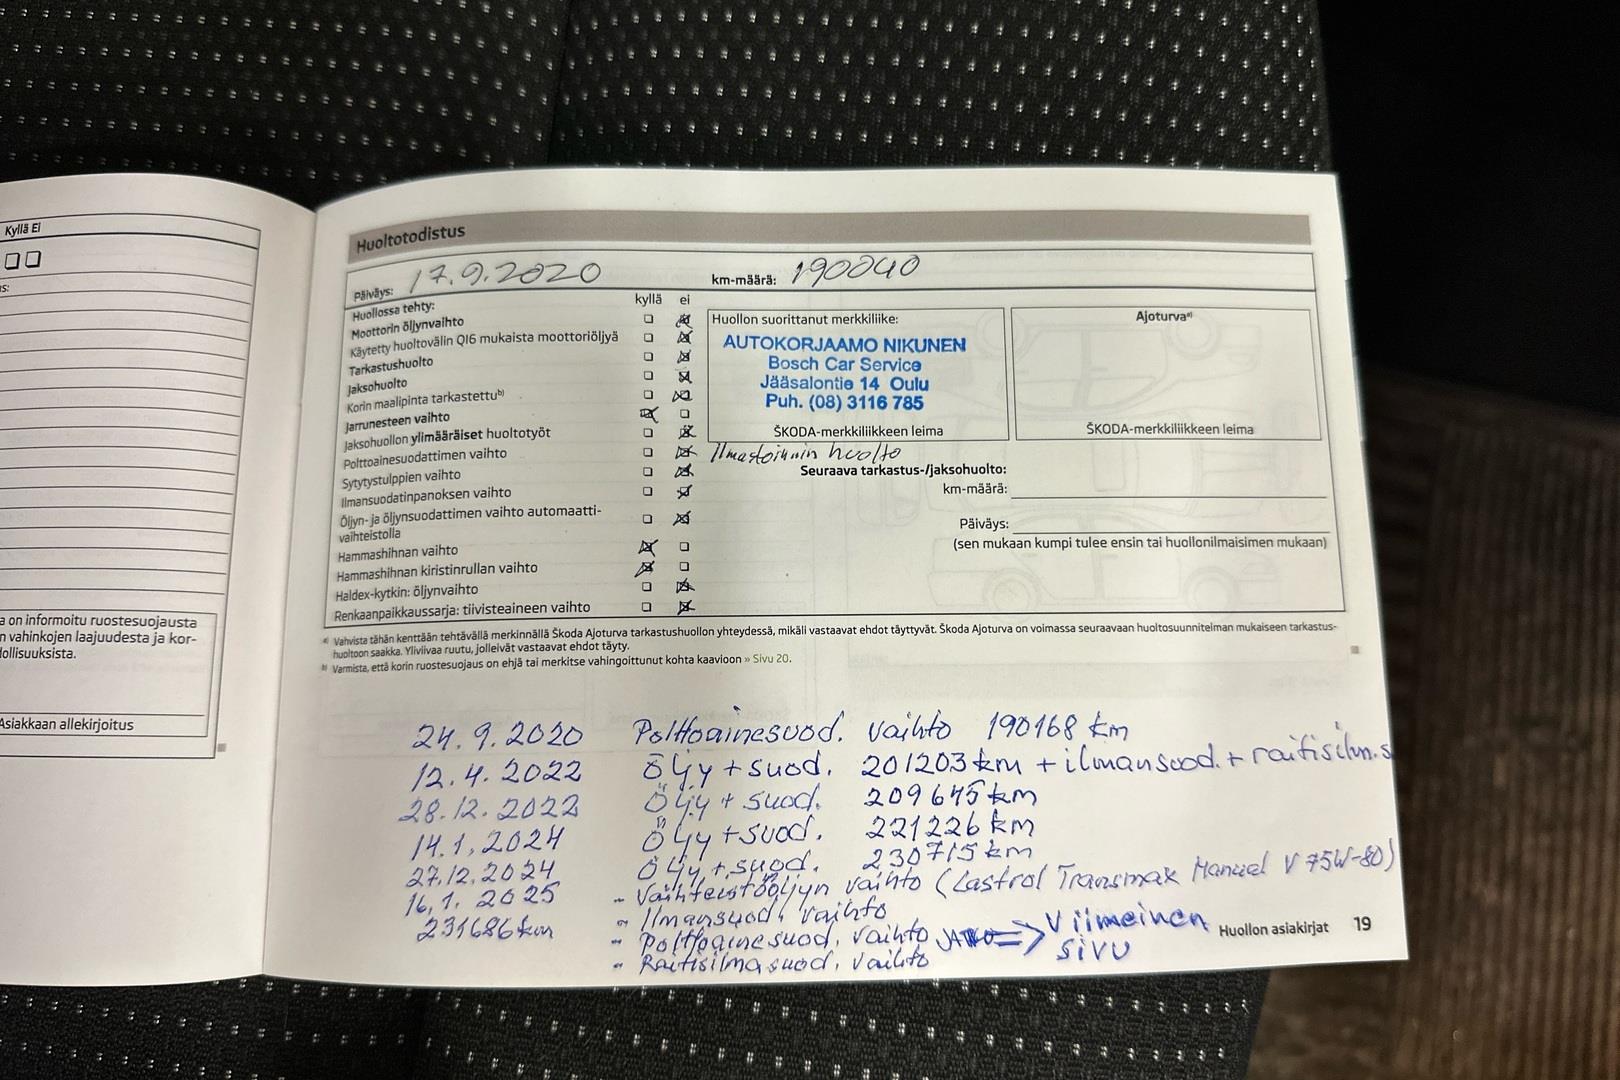 Kyllä Ei
s:
a on informoitu ruostesuojausta
n vahinkojen laajuudesta ja kor-
dollisuuksista.
Asiakkaan allekirjoitus
Huoltotodistus
Päiväys: 17.9.2020 km-määrä: 190040
Huollossa tehty: kyllä ei
Moottorin öljynvaihto
Käytetty huoltovälin QI6 mukaista moottoriöljyä
Tarkastushuolto
Jaksohuolto
Korin maalipinta tarkastettu b)
Jarrunesteen vaihto
Jaksohuollon ylimääräiset huoltotyöt
Polttoainesuodattimen vaihto
Sytytystulppien vaihto
Ilmansuodatinpanoksen vaihto
Öljyn- ja öljynsuodattimen vaihto automaatti-
vaihteistolla
Hammashihnan vaihto
Hammashihnan kiristinrullan vaihto
Haldex-kytkin: öljynvaihto
Renkaanpaikkaussarja: tiivisteaineen vaihto
Huollon suorittanut merkkiliike:
AUTOKORJAAMO NIKUNEN
Bosch Car Service
Jääsalontie 14 Oulu
Puh. (08) 3116 785
ŠKODA-merkkiliikkeen leima
Ajoturva a)
ŠKODA-merkkiliikkeen leima
Ilmastoinnin huolto
Seuraava tarkastus-/jaksohuolto:
km-määrä:
Päiväys:
(sen mukaan kumpi tulee ensin tai huollonilmaisimen mukaan)
a) Vahvista tähän kenttään tehtävällä merkinnällä Škoda Ajoturva tarkastushuollon yhteydessä, mikäli vastaavat ehdot täyttyvät. Škoda Ajoturva on voimassa seuraavaan huoltosuunnitelman mukaiseen tarkastus-
huoltoon saakka. Yliviivaa ruutu, jolleivät vastaavat ehdot täyty.
b) Varmista, että korin ruostesuojaus on ehjä tai merkitse vahingoittunut kohta kaavioon » Sivu 20.
24.9.2020 Polttoainesuod. vaihto 190168 km
12.4.2022 Öljy + suod. 201203 km + ilmansuod. + raitisilm.s
28.12.2022 Öljy + suod. 209645 km
14.1.2024 Öljy + suod. 221226 km
27.12.2024 Öljy + suod. 230715 km
16.1.2025 - Vaihteistoöljyn vaihto (Castrol Transmax Manual V 75W-80)
231686 km - Ilmansuod. vaihto
- Polttoainesuod. vaihto JATKO => Viimeinen
sivu
- Raitisilmasuod. vaihto
Huollon asiakirjat 19